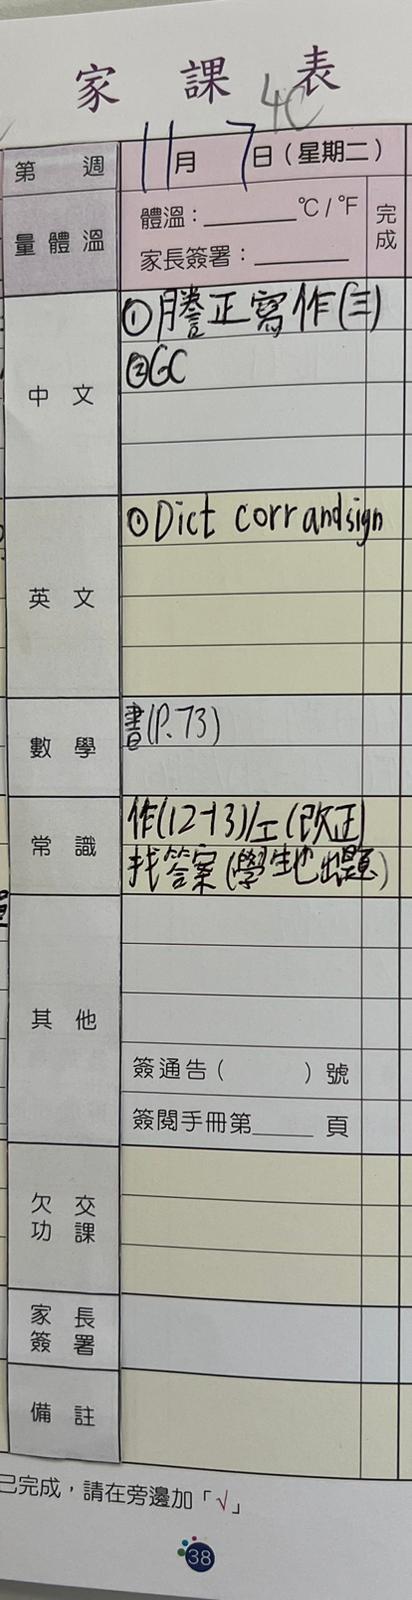 家課表
4C
第 週 11月 7日(星期二)
量體溫 體溫:________°C/°F 完成
家長簽署:________
中文 ①謄正寫作(三)
②GC
英文 ①Dict corr and sign
數學 書(P.73)
常識 作(12-13)/工(改正)
找答案(學生也出題)
其他
簽通告( )號
簽閱手冊第_____頁
欠交功課
家長簽署
備註
已完成,請在旁邊加「√」
38